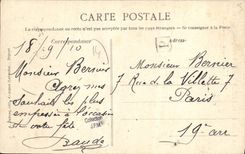 CARTE POSTALE
La correspondance au recto n'est pas acceptée par tous les pays étrangers - Se renseigner à la Poste
Correspondance
Adresse
18/9/10
Monsieur Bernier
Agréez mes
souhaits les plus
empressés à l'occasion
de votre fête
Monsieur Bernier
7 Rue de la Villette 7
Paris
19e arr